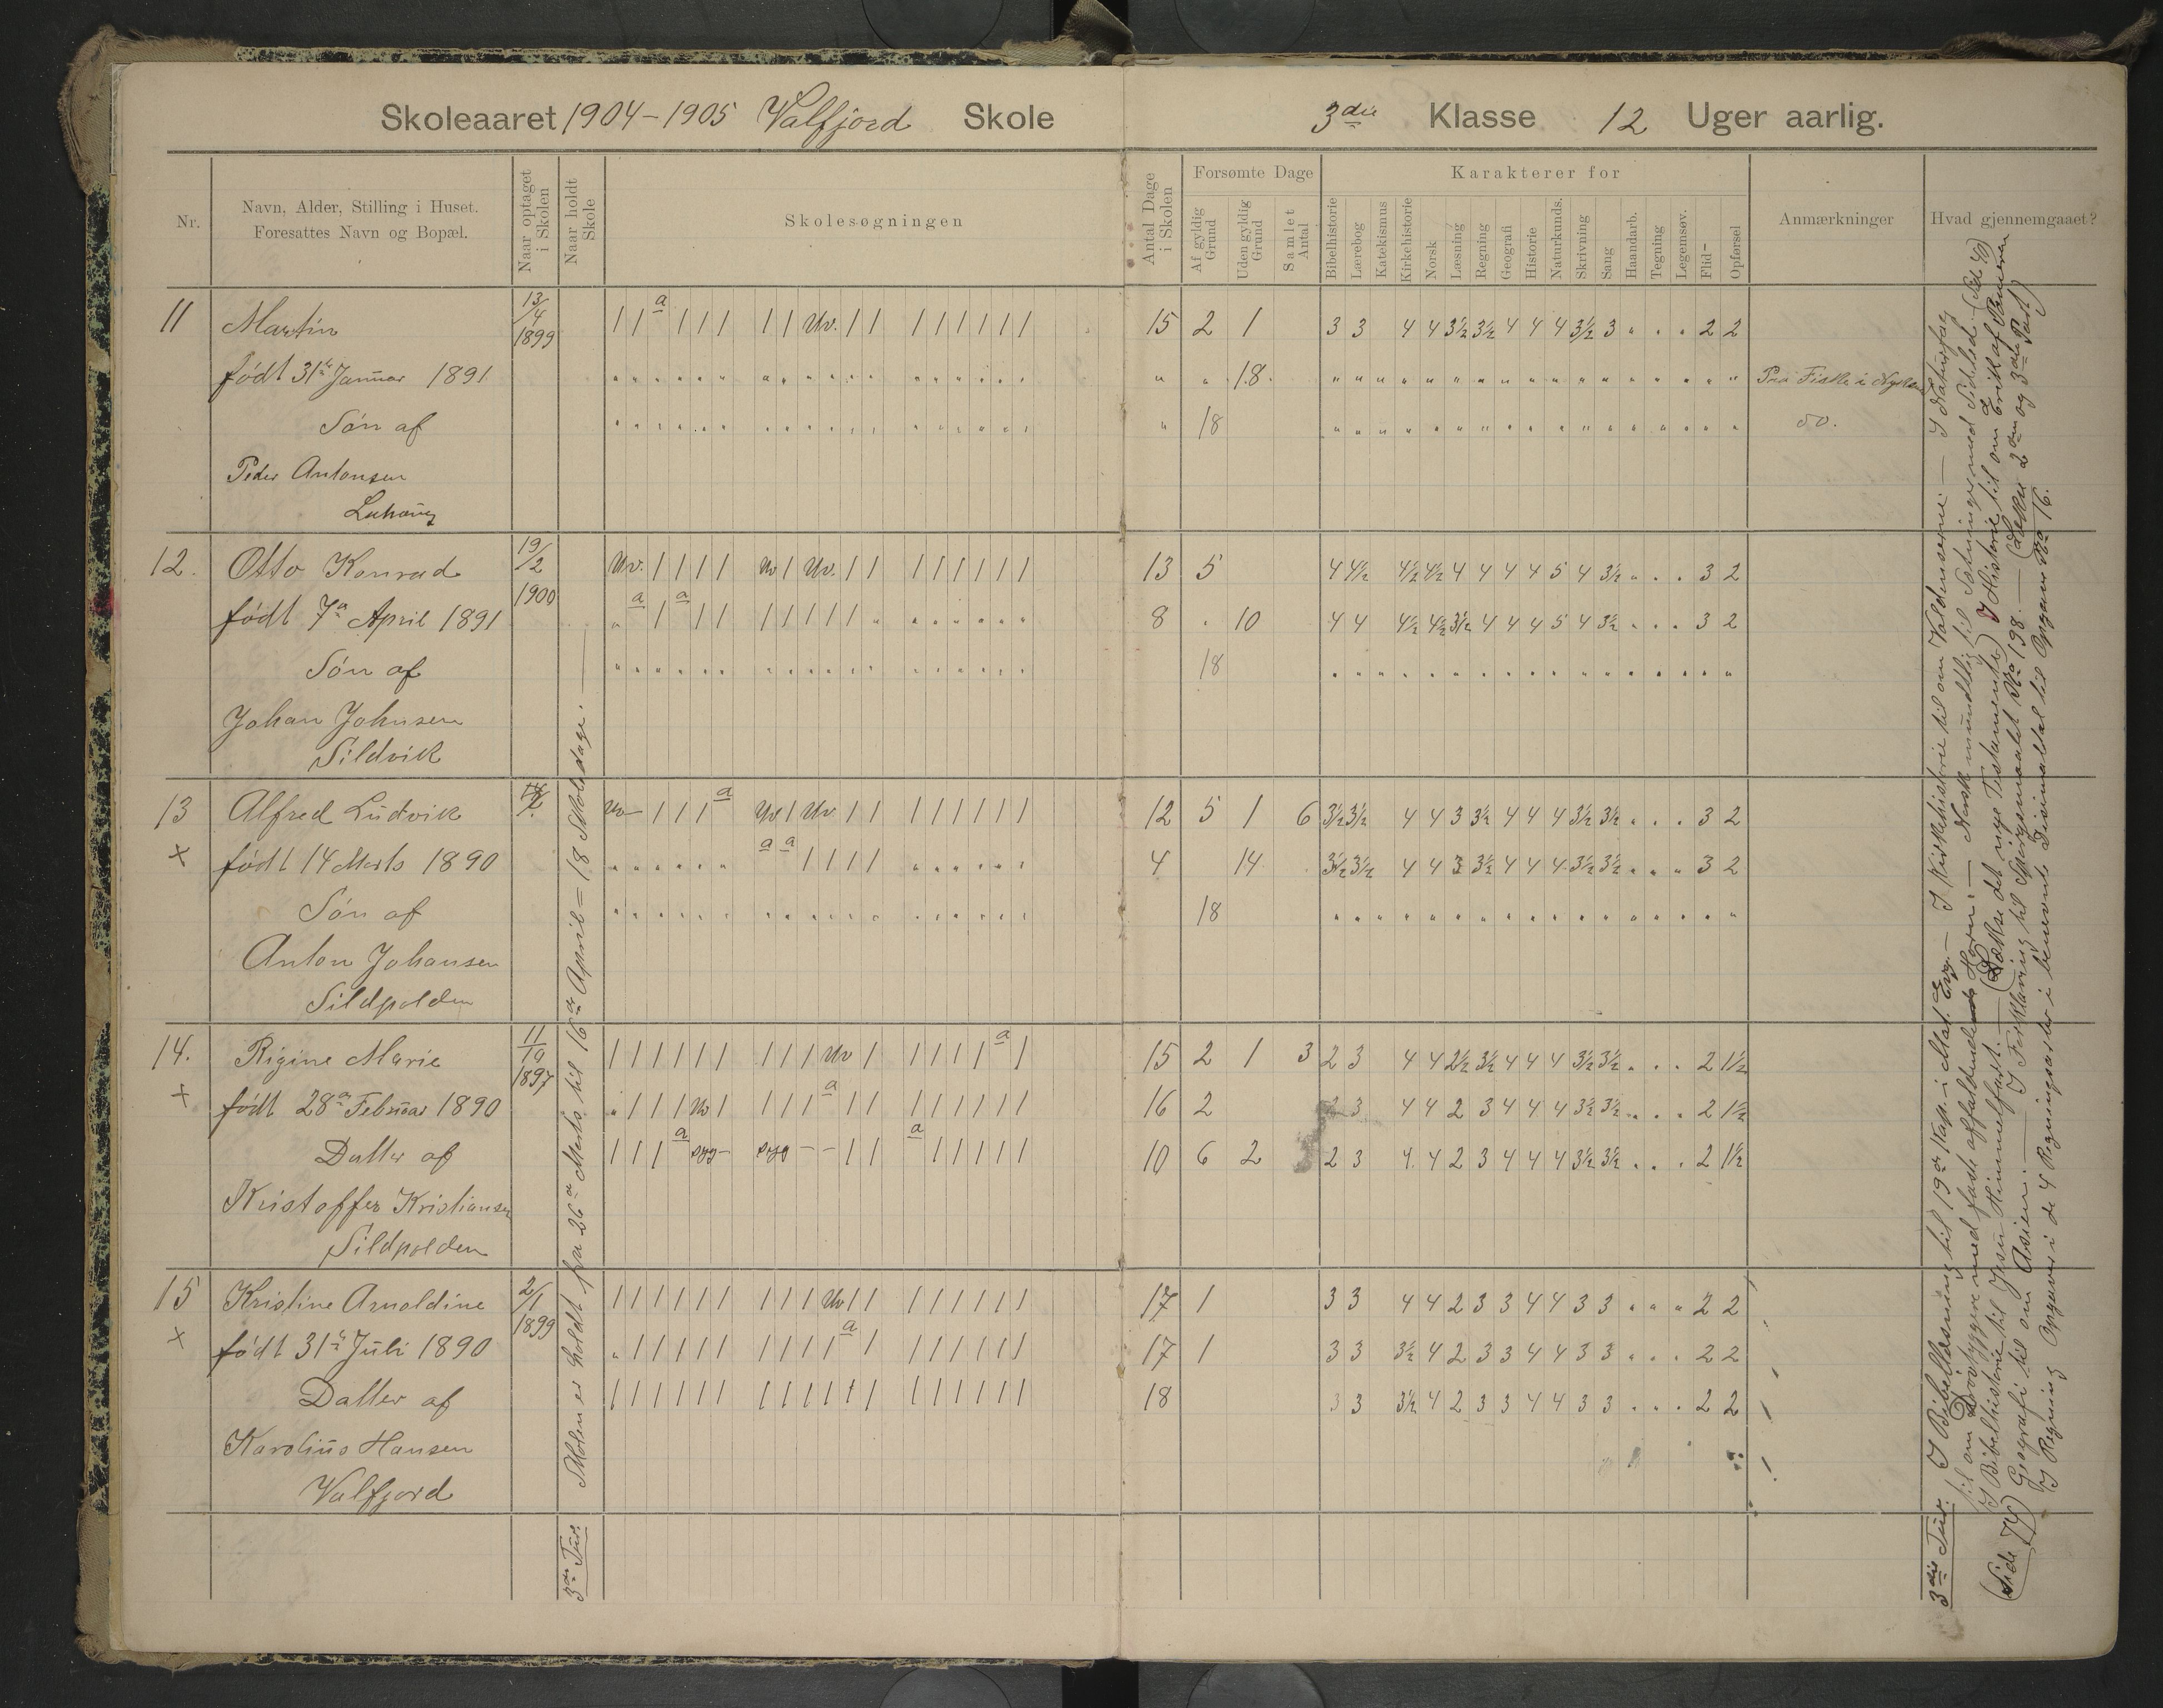 Skoleaaret 1904-1905 Valfjord Skole
3die Klasse 12 Uger aarlig.
Nr.
Navn, Alder, Stilling i Huset.
Foresattes Navn og Bopæl.
Naar optaget
i Skolen
Naar holdt
Skole
Skolesøgningen
Antal Dage
i Skolen
Forsømte Dage
Af gyldig
Grund
Uden gyldig
Grund
Samlet
Antal
Karakterer for
Bibelhistorie
Lærebog
Katekismus
Kirkehistorie
Norsk
Læsning
Regning
Geografi
Historie
Naturkunds.
Skrivning
Sang
Haandarb.
Tegning
Legemsøv.
Flid
Opførsel
Anmærkninger
Hvad gjennemgaaet?
11 Martin 13/4 1899 | | a | | | | | Uv. | | | | | | | | 15 2 1 3 3 4 4 3½ 3½ 4 4 4 3½ 3 " " " 2 2
født 31te Januar 1891 " " 18 Paa Fiske i
Søn af " 18 do.
Peder Antonsen
12. Otto Konrad 19/2 1900 Uv. | | | | Uv | Uv. | | | | | | | | 13 5 4 4½ 4½ 4½ 4 4 4 4 5 4 3½ " " " 3 2
født 7de April 1891 " a | a | | | | | | | " 8 " 10 4 4 4½ 4½ 3½ 4 4 4 5 4 3½ " " " 3 2
Søn af 18
Johan Johnsen
Sildvik
13 Alfred Ludvik Uv - | | | a Uv | Uv | | | | | | | | 12 5 1 6 3½ 3½ 4 4 3 3½ 4 4 4 3½ 3½ " " " 3 2
x født 14 Marts 1890 a a | | | | 4 14 3½ 3½ 4 4 3 3½ 4 4 4 3½ 3½ " " " 3 2
Søn af 18
Anton Johansen
Sildpolden
14. Rigine Marie 11/10 1897 | | | | | | | | | Uv | | | | | a | 15 2 1 3 2 3 4 4 2½ 3½ 4 4 4 3½ 3½ " " " 2 1½
x født 28de Februar 1890 " | | | Uv | | | | a | | | | | | | | 16 2 2 3 4 4 2 3 4 4 4 3½ 3½ " " " 2 1½
Datter af | | | a syg - syg - - | | a | | | | | 10 6 2 2 3 4 4 2 3 4 4 4 3½ 3½ " " " 2 1½
Kristoffer Kristiansen
Sildpolden
15 Kristine Arnoldine 2/1 1899 | | | | | | | | | Uv | | | | | | | | 17 1 3 3 4 4 2 3 3 4 4 3 3 " " " 2 2
x født 31te Juli 1890 " | | | | | | | | | a | | | | | | | 17 1 3 3 3½ 4 2 3 3 4 4 3 3 " " " 2 2
Datter af | | | | | | | | | | | | | | | | | | 18 3 3 3½ 4 2 3 3 4 4 3 3 " " " 2 2
Karolius Hansen
Valfjord
3die Tur. Skolen er holdt fra 26de Marts til 16de April = 18 Skoledage.
3die Tur. I Bibellæsning til 19de Kap. i Mat. Evg. - I Kirkehistorie til om Valdenserne - I Naturfag
til om Drøvtyggere med faste affaldende Horn. - Norsk mundtlig til Sætninger med Sideled. (Side 40)
I Bibelhistorie til Jesu Himmelfart. - (Læse det nye Testamente) I Historie til om Erik af Pommern
(Side 74) Geografi til om Asien. - I Forklaring til Spørgsmaal No 198. - (Læse 2den og 3die Part)
I Regning Opgaver i de 4 Regningsarter i benevnte Desimaltal til Opgave No 16.